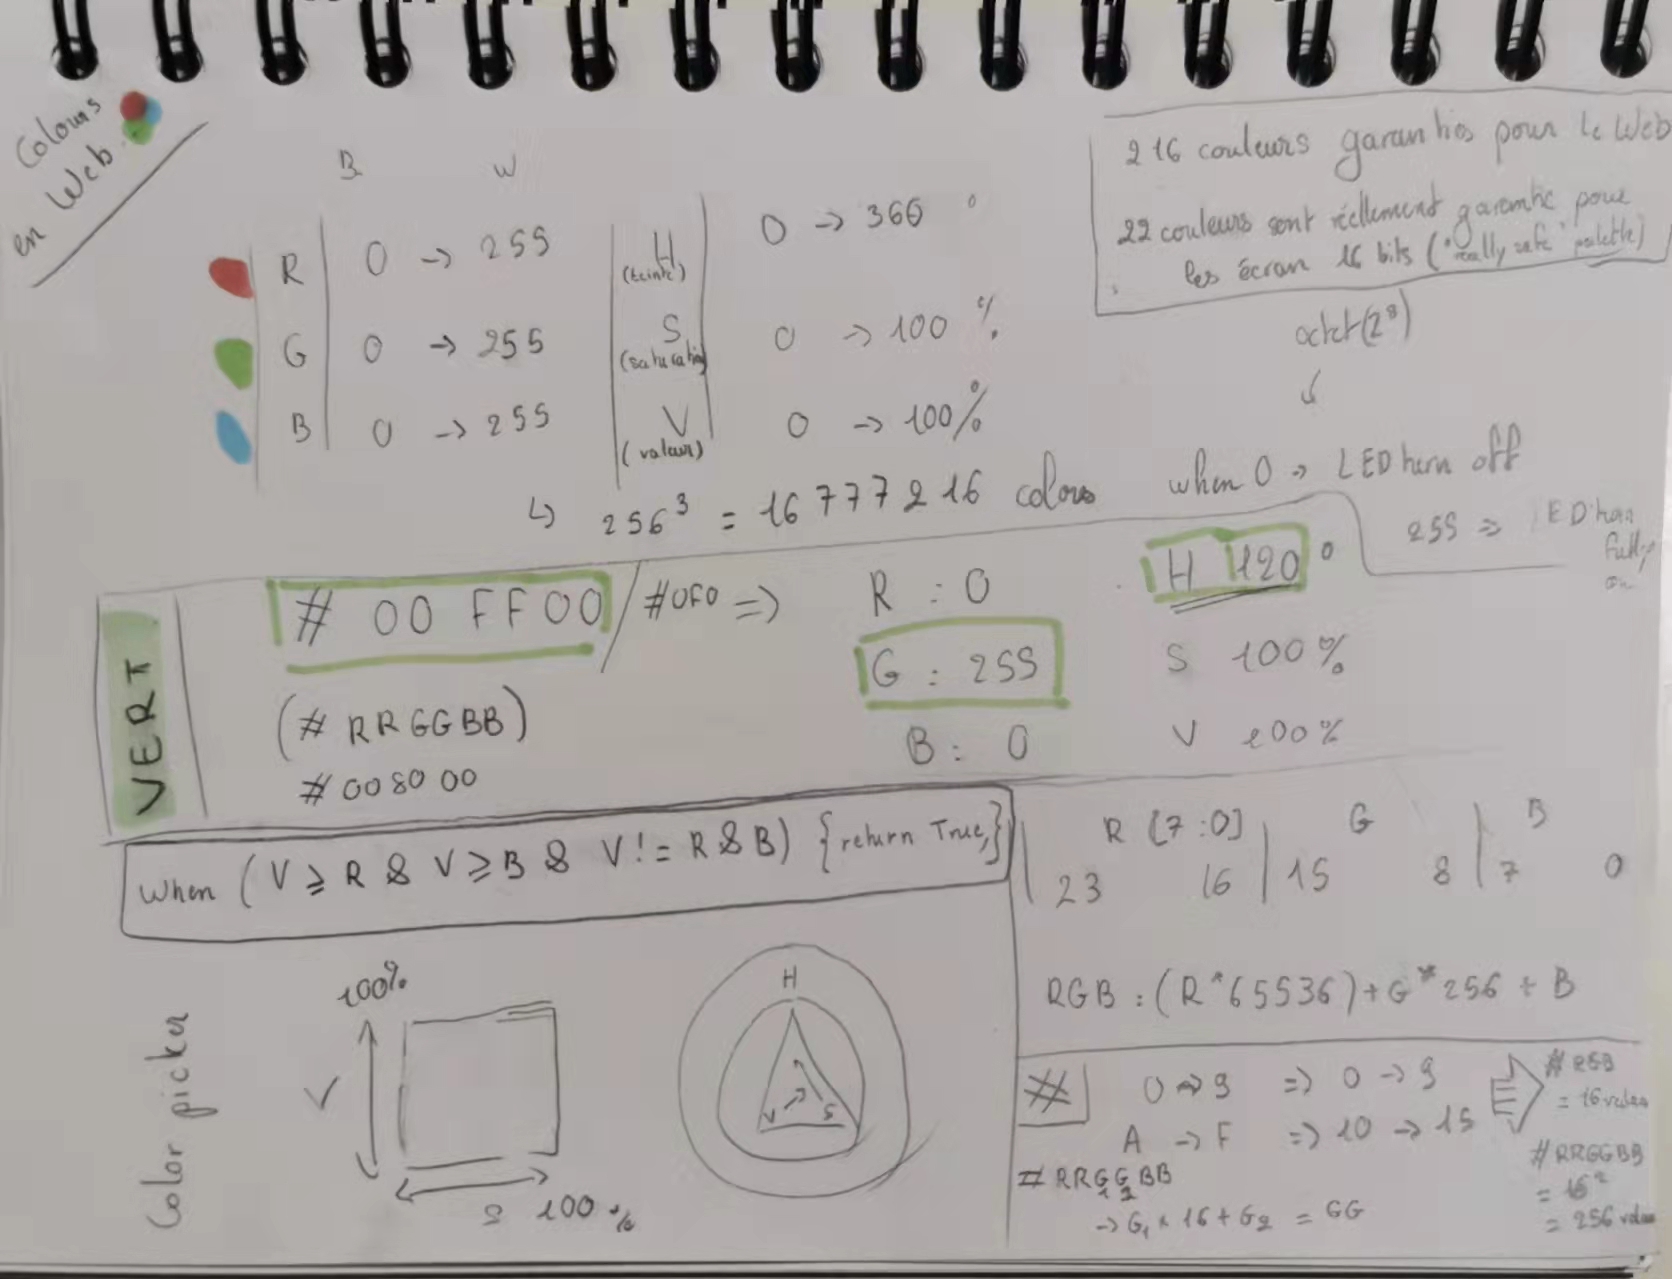 Colours
en Web
B W
R 0 → 255
G 0 → 255
B 0 → 255
H (teinte) 0 → 360 °
S (saturation) 0 → 100 %
V (valeur) 0 → 100%
↳ 256³ = 16 777 216 colors
216 couleurs garanties pour le Web
22 couleurs sont réellement garantie pour
les écran 16 bits ("really safe" palette)
octet (2⁸)
↓
when 0 → LED turn off
255 => LED turn
fully
on
VERT
# 00 FF00 / #0F0 =>
(# RRGGBB)
#008000
R : 0
G : 255
B : 0
H 120 °
S 100%
V 100%
When ( V ⩾ R & V ⩾ B & V != R & B) { return True; }
R [7:0] G B
23 16 15 8 7 0
RGB : (R*65536)+G*256 + B
Color picker
100%
V
S 100 %
H
V S
# 0 → 9 => 0 → 9
A → F => 10 → 15
# RRGGBB
1 2
→ G₁ × 16 + G₂ = GG
# RGB
= 16 values
# RRGGBB
= 16²
= 256 values